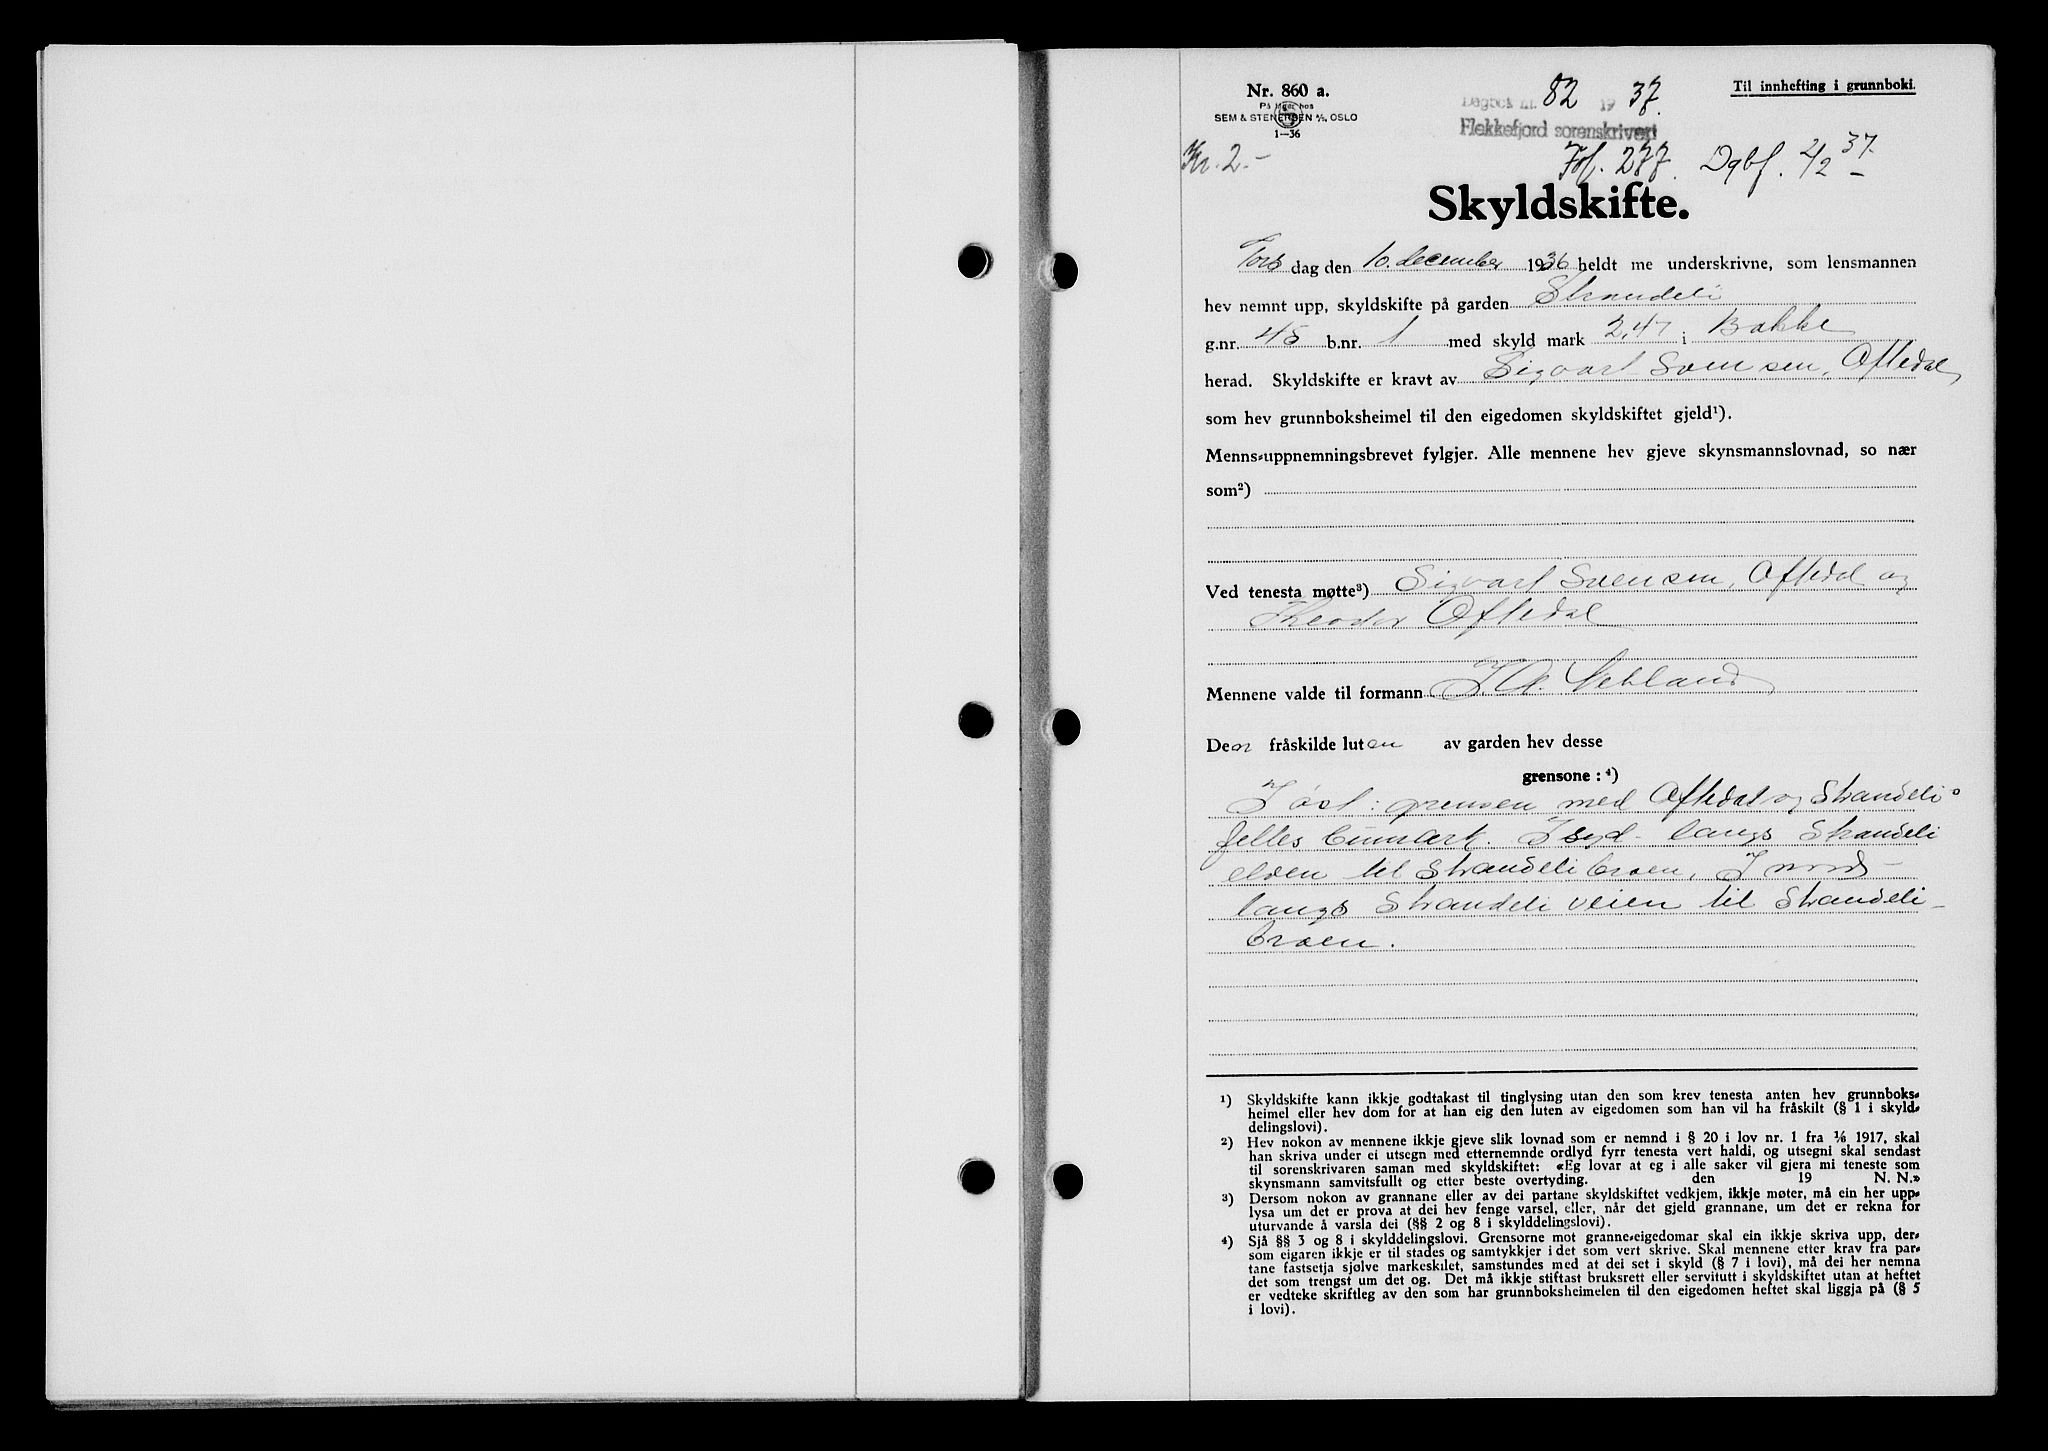 Nr. 860 a.
På lager hos
SEM & STENERSEN A/S, OSLO
1—36
Dagbok nr. 82 19 37.
Flekkefjord sorenskriveri
Til innhefting i grunnboki.
Kr. 2.-
Fol. 277. Dgbf. 2/2 37.
Skyldskifte.
Tors dag den 10. december 1936 heldt me underskrivne, som lensmannen
hev nemnt upp, skyldskifte på garden Strandeli
g.nr. 45 b.nr. 1 med skyld mark 2,47 i Bakke
herad. Skyldskifte er kravt av Sigvart Svensen, Oftedal
som hev grunnboksheimel til den eigedomen skyldskiftet gjeld¹).
Menns-uppnemningsbrevet fylgjer. Alle mennene hev gjeve skynsmannslovnad, so nær
som²)
Ved tenesta møtte³) Sigvart Svensen, Oftedal og
Theodor Oftedal
Mennene valde til formann
Den fråskilde luten av garden hev desse
grensone:⁴)
I øst: grensen med Oftedal og Strandeli
felles Isyd langs Strandeli
elven til Strandeli broen, I nord
langs Strandeli veien til Strandeli-
broen.
¹) Skyldskifte kann ikkje godtakast til tinglysing utan den som krev tenesta anten hev grunnboks-
heimel eller hev dom for at han eig den luten av eigedomen som han vil ha fråskilt (§ 1 i skyld-
delingslovi).
²) Hev nokon av mennene ikkje gjeve slik lovnad som er nemnd i § 20 i lov nr. 1 fra 1/6 1917, skal
han skriva under ei utsegn med etternemnde ordlyd fyrr tenesta vert haldi, og utsegni skal sendast
til sorenskrivaren saman med skyldskiftet: «Eg lovar at eg i alle saker vil gjera mi teneste som
skynsmann samvitsfullt og etter beste overtyding. den 19 N. N.»
³) Dersom nokon av grannane eller av dei partane skyldskiftet vedkjem, ikkje møter, må ein her upp-
lysa um det er prova at dei hev fenge varsel, eller, når det gjeld grannane, um det er rekna for
uturvande å varsla dei (§§ 2 og 8 i skylddelingslovi).
⁴) Sjå §§ 3 og 8 i skylddelingslovi. Grensorne mot granne-eigedomar skal ein ikkje skriva upp, der-
som eigaren ikkje er til stades og samtykkjer i det som vert skrive. Skal mennene etter krav fra par-
tane fastsetja sjølve markeskilet, samstundes med at dei set i skyld (§ 7 i lovi), må dei her nemna
det som trengst um det og. Det må ikkje stiftast bruksrett eller servitutt i skyldskiftet utan at heftet
er vedteke skriftleg av den som har grunnboksheimelen til den eigedomen heftet skal liggja på (§ 5
i lovi).